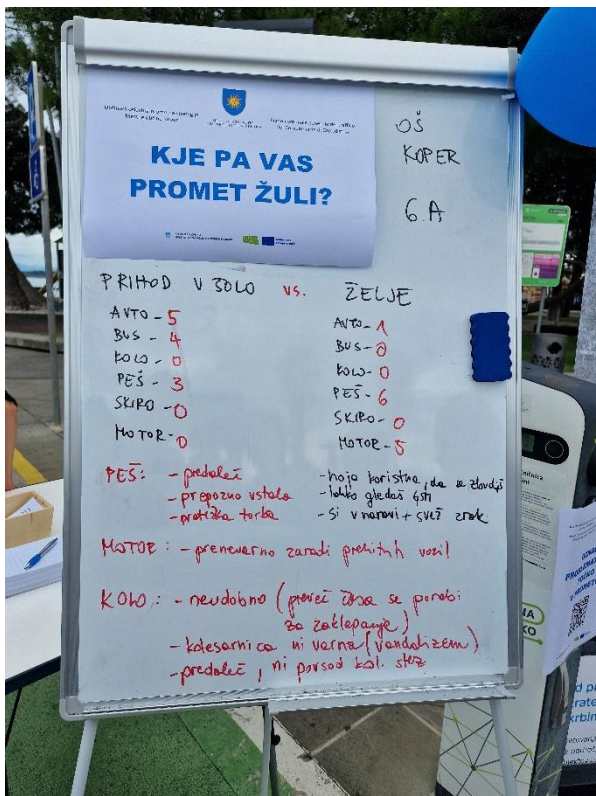 KJE PA VAS
PROMET ŽULI?
OŠ
KOPER
6.A
PRIHOD V ŠOLO vs. ŽELJE
AVTO - 5
BUS - 4
KOLO - 0
PEŠ - 3
SKIRO - 0
MOTOR - 0
AVTO - 1
BUS - 0
KOLO - 0
PEŠ - 6
SKIRO - 0
MOTOR - 5
PEŠ: - predaleč
- prepozno vstala
- pretežka torba
- hoja koristna, da se zbudiš
- lahko gledaš
- si v naravi + svež zrak
MOTOR: - prenevarno zaradi prehitrih vozil
KOLO: - neudobno (preveč časa se porabi
za zaklepanje)
- kolesarnica ni varna (vandalizem)
- predaleč, ni povsod kol. stez